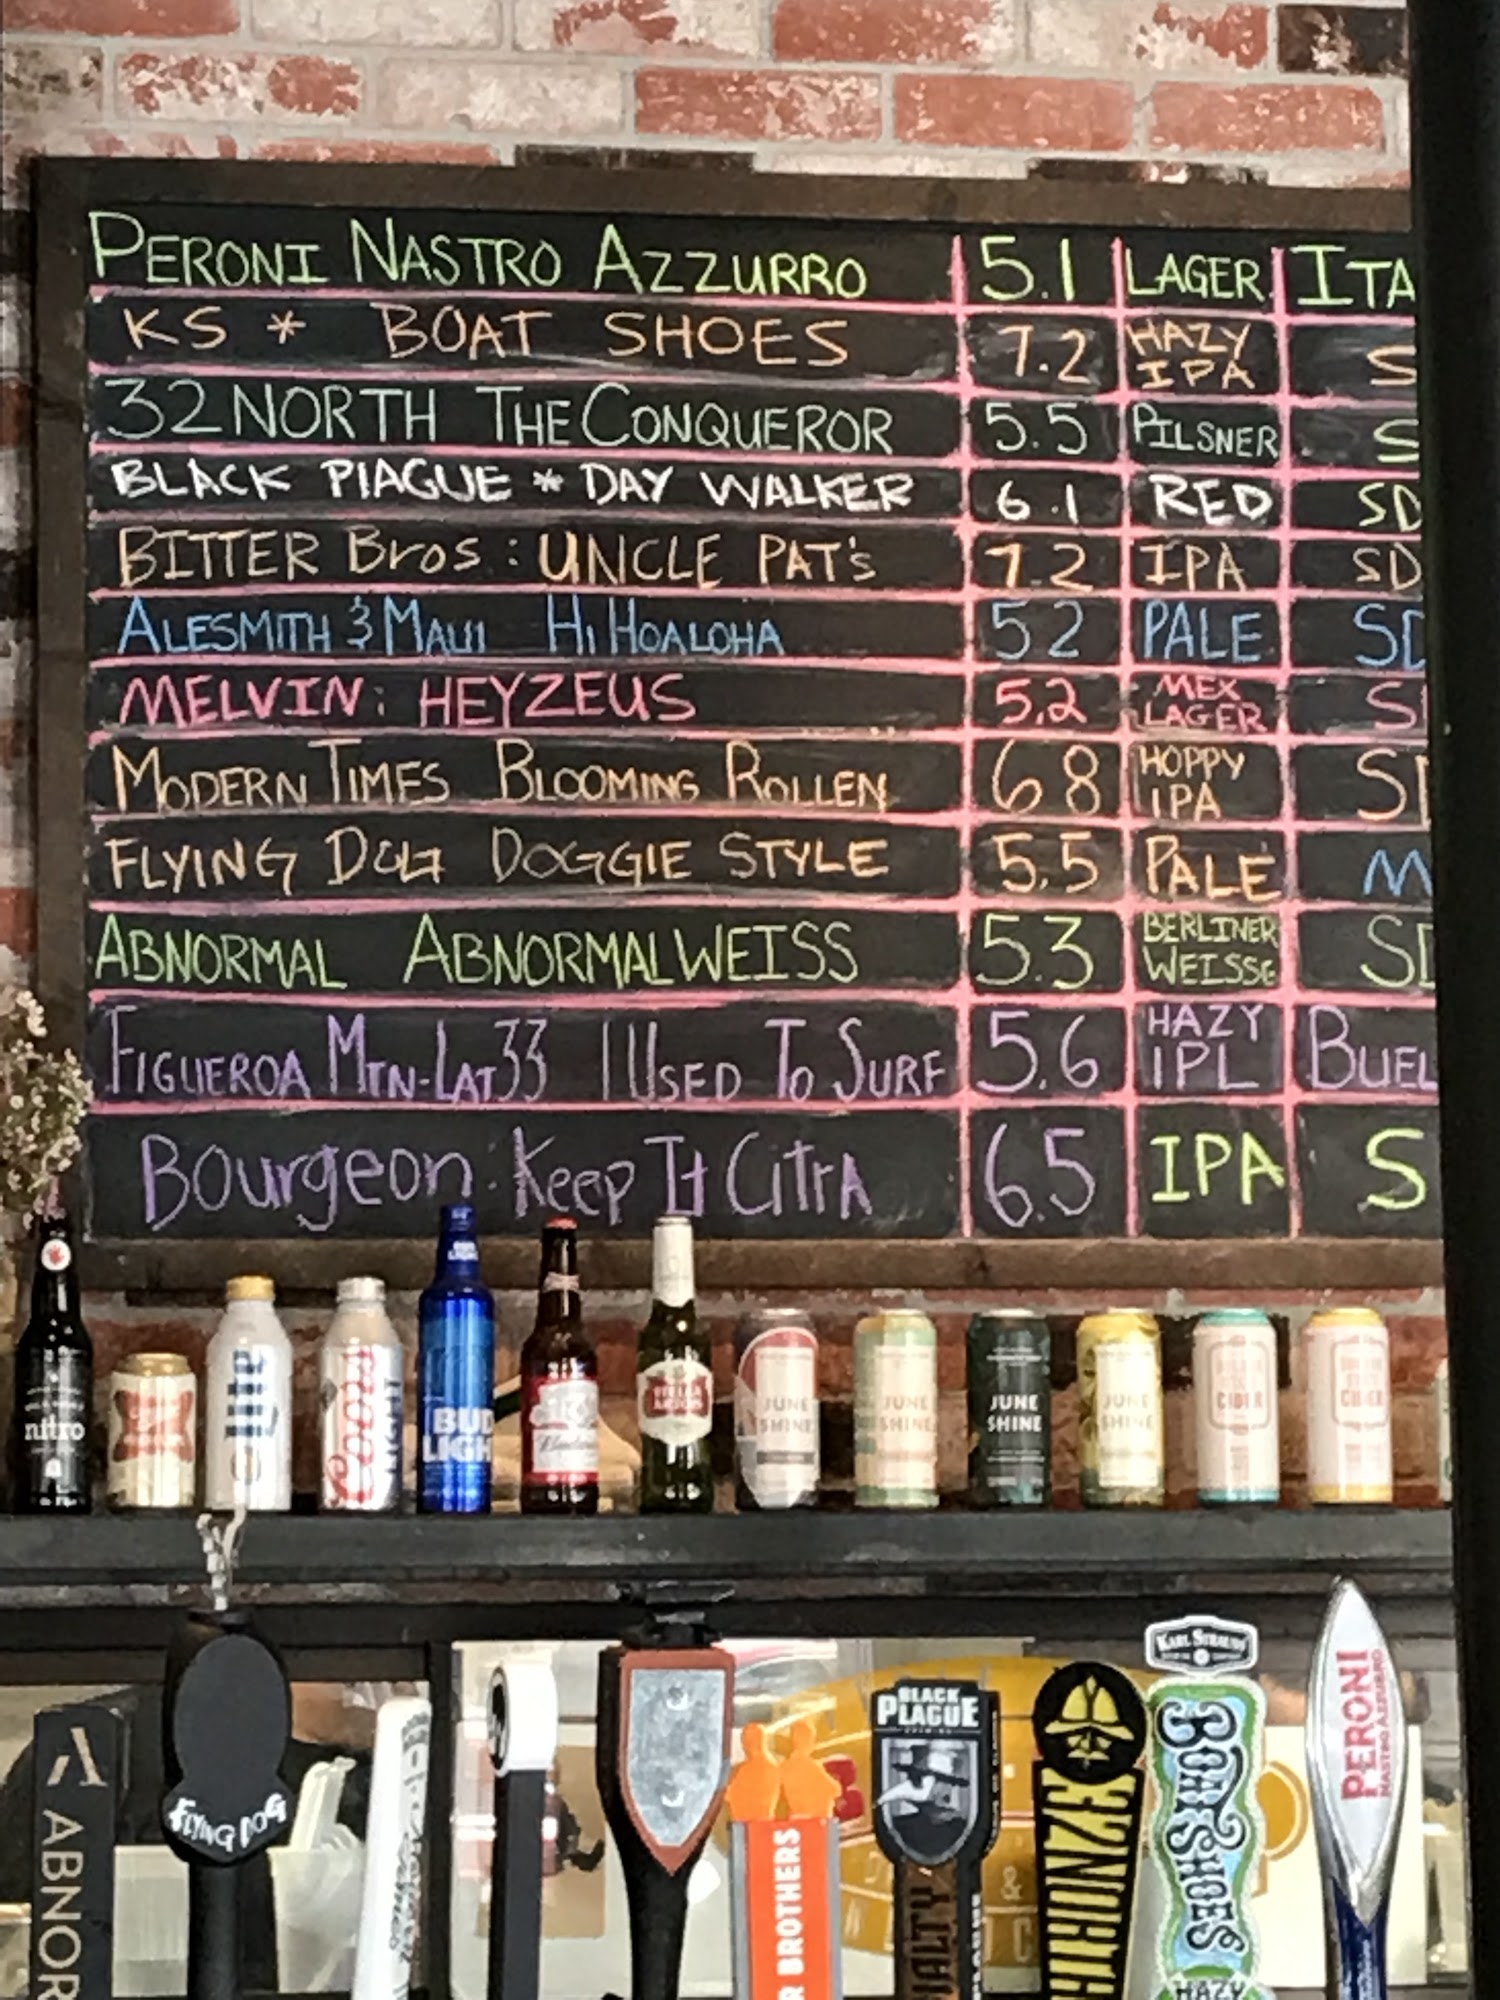 PERONI NASTRO AZZURRO 5.1 LAGER ITA
KS * BOAT SHOES 7.2 HAZY IPA S
32 NORTH THE CONQUEROR 5.5 PILSNER S
BLACK PLAGUE * DAY WALKER 6.1 RED SD
BITTER Bros : UNCLE PAT's 7.2 IPA SD
ALESMITH & MAUI HI HOALOHA 5.2 PALE SD
MELVIN: HEYZEUS 5.2 MEX LAGER S
MODERN TIMES BLOOMING ROLLEN 6.8 HOPPY IPA SD
FLYING DOG DOGGIE STYLE 5.5 PALE M
ABNORMAL ABNORMALWEISS 5.3 BERLINER WEISSE SD
FIGUEROA MTN-LAT 33 I USED TO SURF 5.6 HAZY IPL BUEL
Bourgeon: Keep It CitrA 6.5 IPA S
nitro
BUD LIGHT
Coors
STELLA ARTOIS
JUNE SHINE
JUNE SHINE
JUNE SHINE
JUNE SHINE
CIDER
CIDER
ABNOR
FLYING DOG
R BROTHERS
BLACK PLAGUE
KARL STRAUSS
BOAT SHOES
HAZY
PERONI
NASTRO AZZURRO